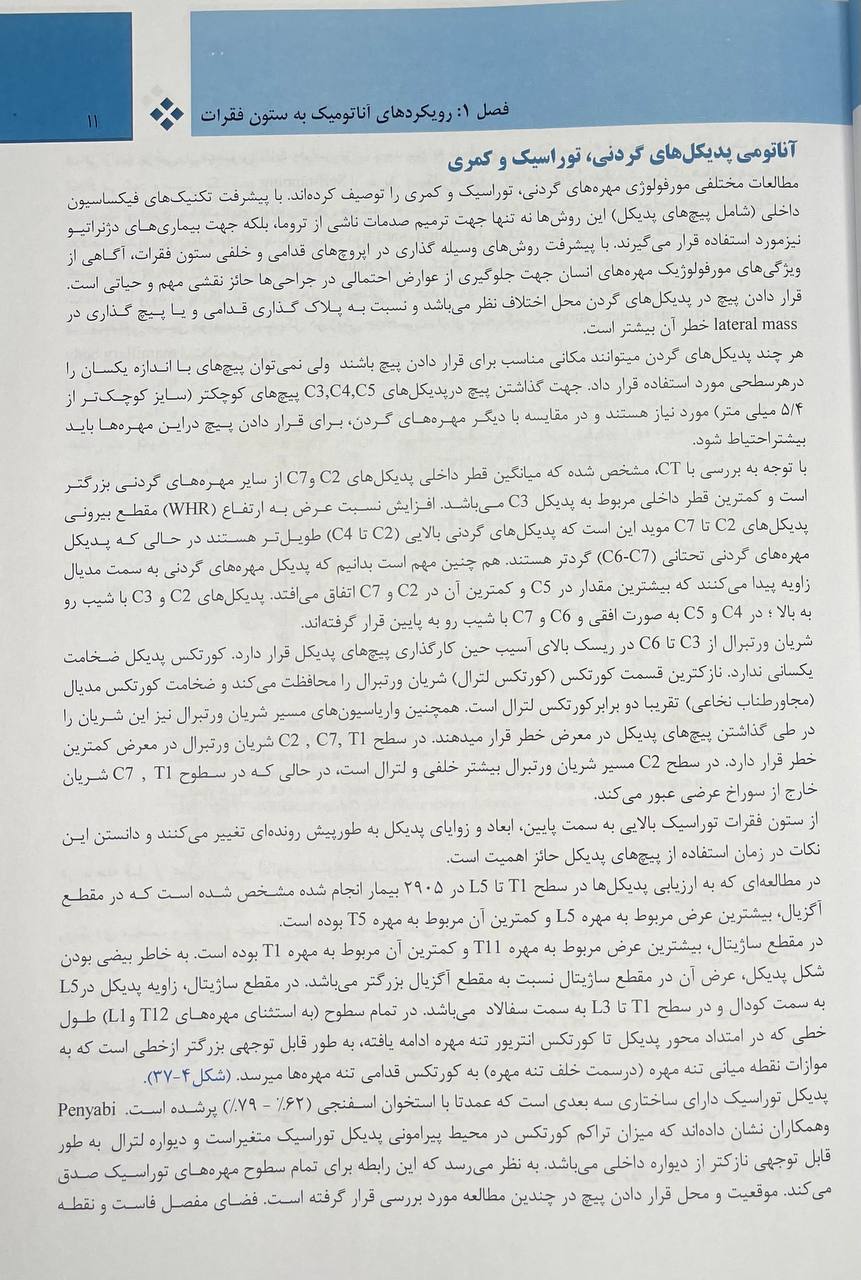 فصل ۱: رویکردهای آناتومیک به ستون فقرات
۱۱
آناتومی پدیکل‌های گردنی، توراسیک و کمری
مطالعات مختلفی مورفولوژی مهره‌های گردنی، توراسیک و کمری را توصیف کرده‌اند. با پیشرفت تکنیک‌های فیکساسیون
داخلی (شامل پیچ‌های پدیکل) این روش‌ها نه تنها جهت ترمیم صدمات ناشی از تروما، بلکه جهت بیماری‌های دژنراتیو
نیزمورد استفاده قرار می‌گیرند. با پیشرفت روش‌های وسیله گذاری در اپروچ‌های قدامی و خلفی ستون فقرات، آگاهی از
ویژگی‌های مورفولوژیک مهره‌های انسان جهت جلوگیری از عوارض احتمالی در جراحی‌ها حائز نقشی مهم و حیاتی است.
قرار دادن پیچ در پدیکل‌های گردن محل اختلاف نظر می‌باشد و نسبت به پلاک گذاری قدامی و یا پیچ گذاری در
lateral mass خطر آن بیشتر است.
هر چند پدیکل‌های گردن میتوانند مکانی مناسب برای قرار دادن پیچ باشند ولی نمی‌توان پیچ‌های با اندازه یکسان را
درهرسطحی مورد استفاده قرار داد. جهت گذاشتن پیچ درپدیکل‌های C3,C4,C5 پیچ‌های کوچکتر (سایز کوچک‌تر از
۵/۴ میلی متر) مورد نیاز هستند و در مقایسه با دیگر مهره‌های گردن، برای قرار دادن پیچ دراین مهره‌ها باید
بیشتراحتیاط شود.
با توجه به بررسی با CT، مشخص شده که میانگین قطر داخلی پدیکل‌های C2 وC7 از سایر مهره‌های گردنی بزرگتر
است و کمترین قطر داخلی مربوط به پدیکل C3 می‌باشد. افزایش نسبت عرض به ارتفاع (WHR) مقطع بیرونی
پدیکل‌های C2 تا C7 موید این است که پدیکل‌های گردنی بالایی (C2 تا C4) طویل‌تر هستند در حالی که پدیکل
مهره‌های گردنی تحتانی (C6-C7) گردتر هستند. هم چنین مهم است بدانیم که پدیکل مهره‌های گردنی به سمت مدیال
زاویه پیدا می‌کنند که بیشترین مقدار در C5 و کمترین آن در C2 و C7 اتفاق می‌افتد. پدیکل‌های C2 و C3 با شیب رو
به بالا ؛ در C4 و C5 به صورت افقی و C6 و C7 با شیب رو به پایین قرار گرفته‌اند.
شریان ورتبرال از C3 تا C6 در ریسک بالای آسیب حین کارگذاری پیچ‌های پدیکل قرار دارد. کورتکس پدیکل ضخامت
یکسانی ندارد. نازکترین قسمت کورتکس (کورتکس لترال) شریان ورتبرال را محافظت می‌کند و ضخامت کورتکس مدیال
(مجاورطناب نخاعی) تقریبا دو برابرکورتکس لترال است. همچنین واریاسیون‌های مسیر شریان ورتبرال نیز این شریان را
در طی گذاشتن پیچ‌های پدیکل در معرض خطر قرار میدهند. در سطح C2 , C7, T1 شریان ورتبرال در معرض کمترین
خطر قرار دارد. در سطح C2 مسیر شریان ورتبرال بیشتر خلفی و لترال است، در حالی که در سطوح C7 , T1 شریان
خارج از سوراخ عرضی عبور می‌کند.
از ستون فقرات توراسیک بالایی به سمت پایین، ابعاد و زوایای پدیکل به طورپیش رونده‌ای تغییر می‌کنند و دانستن این
نکات در زمان استفاده از پیچ‌های پدیکل حائز اهمیت است.
در مطالعه‌ای که به ارزیابی پدیکل‌ها در سطح T1 تا L5 در ۲۹۰۵ بیمار انجام شده مشخص شده است که در مقطع
آگزیال، بیشترین عرض مربوط به مهره L5 و کمترین آن مربوط به مهره T5 بوده است.
در مقطع ساژیتال، بیشترین عرض مربوط به مهره T11 و کمترین آن مربوط به مهره T1 بوده است. به خاطر بیضی بودن
شکل پدیکل، عرض آن در مقطع ساژیتال نسبت به مقطع آگزیال بزرگتر می‌باشد. در مقطع ساژیتال، زاویه پدیکل درL5
به سمت کودال و در سطح T1 تا L3 به سمت سفالاد می‌باشد. در تمام سطوح (به استثنای مهره‌های T12 وL1) طول
خطی که در امتداد محور پدیکل تا کورتکس انتریور تنه مهره ادامه یافته، به طور قابل توجهی بزرگتر ازخطی است که به
موازات نقطه میانی تنه مهره (درسمت خلف تنه مهره) به کورتکس قدامی تنه مهره‌ها میرسد. (شکل۴-۳۷).
پدیکل توراسیک دارای ساختاری سه بعدی است که عمدتا با استخوان اسفنجی (۶۲٪ - ۷۹٪) پرشده است. Penyabi
وهمکاران نشان داده‌اند که میزان تراکم کورتکس در محیط پیرامونی پدیکل توراسیک متغیراست و دیواره لترال به طور
قابل توجهی نازکتر از دیواره داخلی می‌باشد. به نظر می‌رسد که این رابطه برای تمام سطوح مهره‌های توراسیک صدق
می‌کند. موقعیت و محل قرار دادن پیچ در چندین مطالعه مورد بررسی قرار گرفته است. فضای مفصل فاست و نقطه